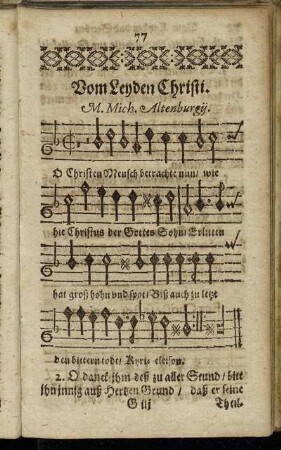 77
Vom Leyden Christi.
M. Mich. Altenburgij.
O Christen Mensch betrachte nun/ wie
hie Christus der Gottes Sohn/ Erlitten
hat groß hohn vnd spot/ Biß auch zu letzt
den bittern todt/ Kyrie eleison.
2. O danck ihm deß zu aller Stund/ bitt
ihn innig auß Hertzen Grund/ daß er seine
G iij Theil.